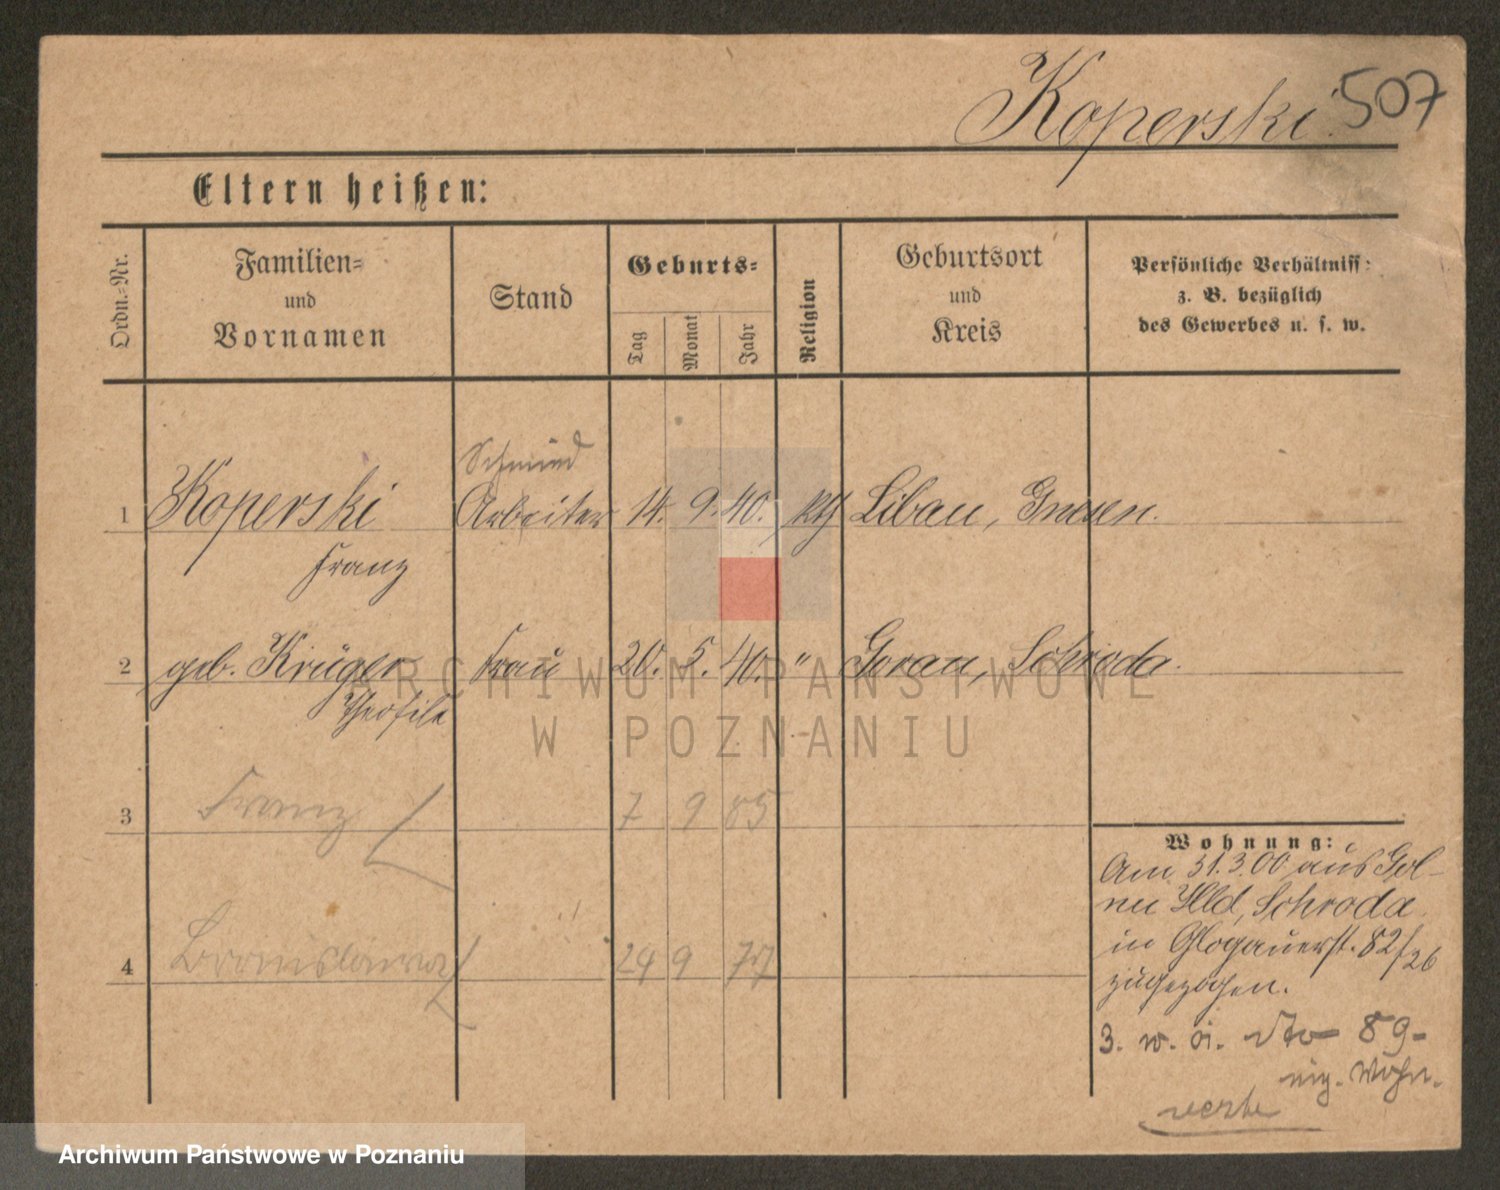 Koperski 507
Eltern heißen:
Ordn.-Nr.
Familien-
und
Vornamen
Stand
Geburts-
Tag
Monat
Jahr
Religion
Geburtsort
und
Kreis
Persönliche Verhältniss:
z. B. bezüglich
des Gewerbes u. s. w.
Schmied
1 Koperski Arbeiter 14. 9. 40. kth Libau, Gnesen.
Franz
2 geb. Krüger Frau 20. 5. 40. " Goran, Schroda.
Theofila
ARCHIWUM PAŃSTWOWE
W POZNANIU
3 Franz 7 9 85
4 Bronislawa 24 9 77
Wohnung:
Am 31.3.00 aus
Schroda
in Glogauerst. 82/26
zugezogen.
3. w. 89-
Wohn.
verte
Archiwum Państwowe w Poznaniu